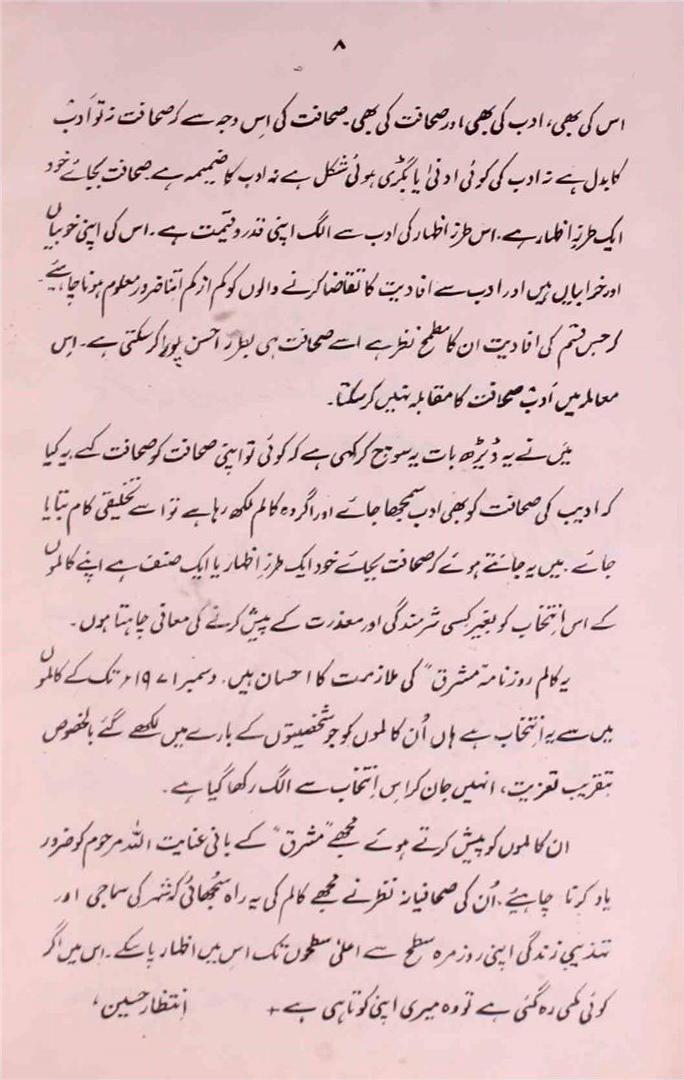 ۸
اس کی بھی، ادب کی بھی اور صحافت کی بھی۔ صحافت کی اس وجہ سے کہ صحافت نہ تو ادب
کا بدل ہے نہ ادب کی کوئی ادنیٰ یا بگڑی ہوئی شکل ہے نہ ادب کا ضمیمہ ہے۔ صحافت بجائے خود
ایک طرزِ اظہار ہے۔ اس طرزِ اظہار کی ادب سے الگ اپنی قدر و قیمت ہے۔ اس کی اپنی خوبیاں
اور خرابیاں ہیں اور ادب سے افادیت کا تقاضا کرنے والوں کو کم از کم اتنا ضرور معلوم ہونا چاہیئے۔
کہ جس قسم کی افادیت ان کا مطمحِ نظر ہے اسے صحافت ہی بطرزِ احسن پورا کر سکتی ہے۔ اس
معاملہ میں ادب صحافت کا مقابلہ نہیں کر سکتا۔
میں نے یہ ڈیڑھ بات یہ سوچ کر کہی ہے کہ کوئی تو اپنی صحافت کو صحافت کہے۔ یہ کیا
کہ ادیب کی صحافت کو بھی ادب سمجھا جائے اور اگر وہ کالم لکھ رہا ہے تو اسے تخلیقی کام بتایا
جائے۔ میں یہ جانتے ہوئے کہ صحافت بجائے خود ایک طرزِ اظہار یا ایک صنف ہے اپنے کالموں
کے اس انتخاب کو بغیر کسی شرمندگی اور معذرت کے پیش کرنے کی معافی چاہتا ہوں۔
یہ کالم روزنامہ "مشرق" کی ملازمت کا احسان ہیں۔ دسمبر ۱۹۷۱ء تک کے کالموں
میں سے یہ انتخاب ہے ہاں اُن کالموں کو جو شخصیتوں کے بارے میں لکھے گئے بالخصوص
بتقریب تعزیت، انہیں جان کر اس انتخاب سے الگ رکھا گیا ہے۔
ان کالموں کو پیش کرتے ہوئے مجھے "مشرق" کے بانی عنایت اللہ مرحوم کو ضرور
یاد کرنا چاہیئے۔ اُن کی صحافیانہ نظر نے مجھے کالم کی یہ راہ سُجھائی کہ شہر کی سماجی اور
تہذیبی زندگی اپنی روزمرہ سطح سے اعلیٰ سطحوں تک اس میں اظہار پا سکے۔ اس میں اگر
کوئی کمی رہ گئی ہے تو وہ میری اپنی کوتاہی ہے + انتظار حسین،